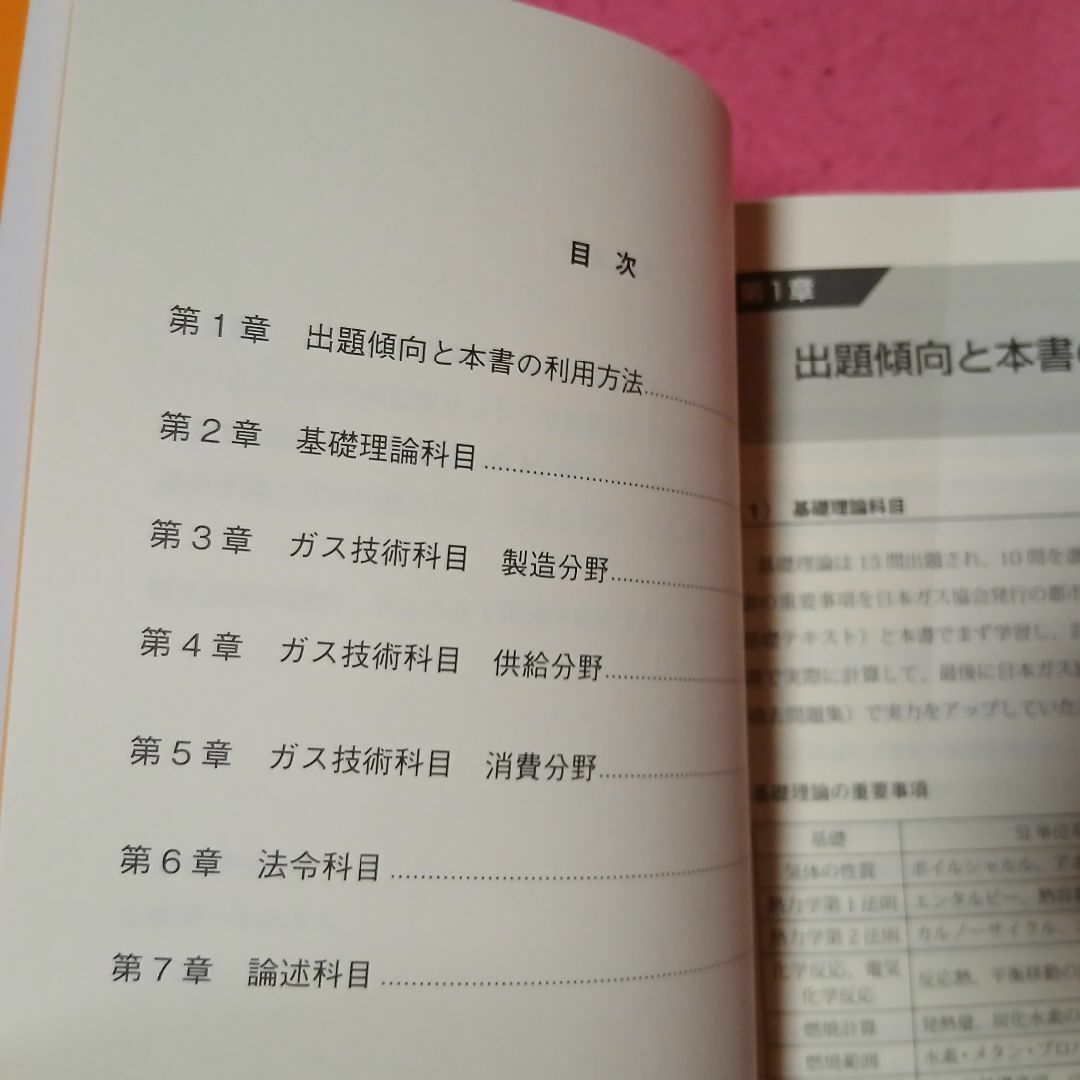 目 次
第1章 出題傾向と本書の利用方法
第2章 基礎理論科目
第3章 ガス技術科目 製造分野
第4章 ガス技術科目 供給分野
第5章 ガス技術科目 消費分野
第6章 法令科目
第7章 論述科目
第1章
出題傾向と本書
1) 基礎理論科目
基礎理論は15問出題され、10問を選
の重要事項を日本ガス協会発行の都市
礎テキスト)と本書でまず学習し、
で実際に計算して、最後に日本ガス
去問題集)で実力をアップしていた
基礎理論の重要事項
基礎 SI単位
気体の性質 ボイルシャルル、アボ
熱力学第1法則 エンタルピー、熱容
熱力学第2法則 カルノーサイクル、
化学反応、電気化学反応 反応熱、平衡移動の
燃焼計算 発熱量、炭化水素の
燃焼範囲 水素・メタン・プロパ